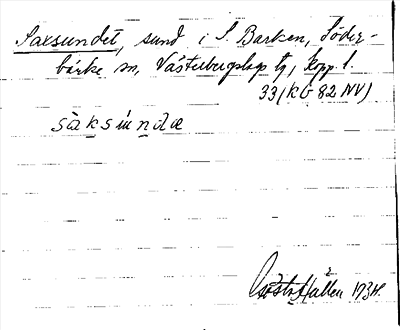 Saxsundet, sund i S. Barken, Söder-
bärke sn, Västerbergslags tg, Kopp. l.
33 (KG 82 NV)
sàksùndæ
Gösta Hallén 1934.